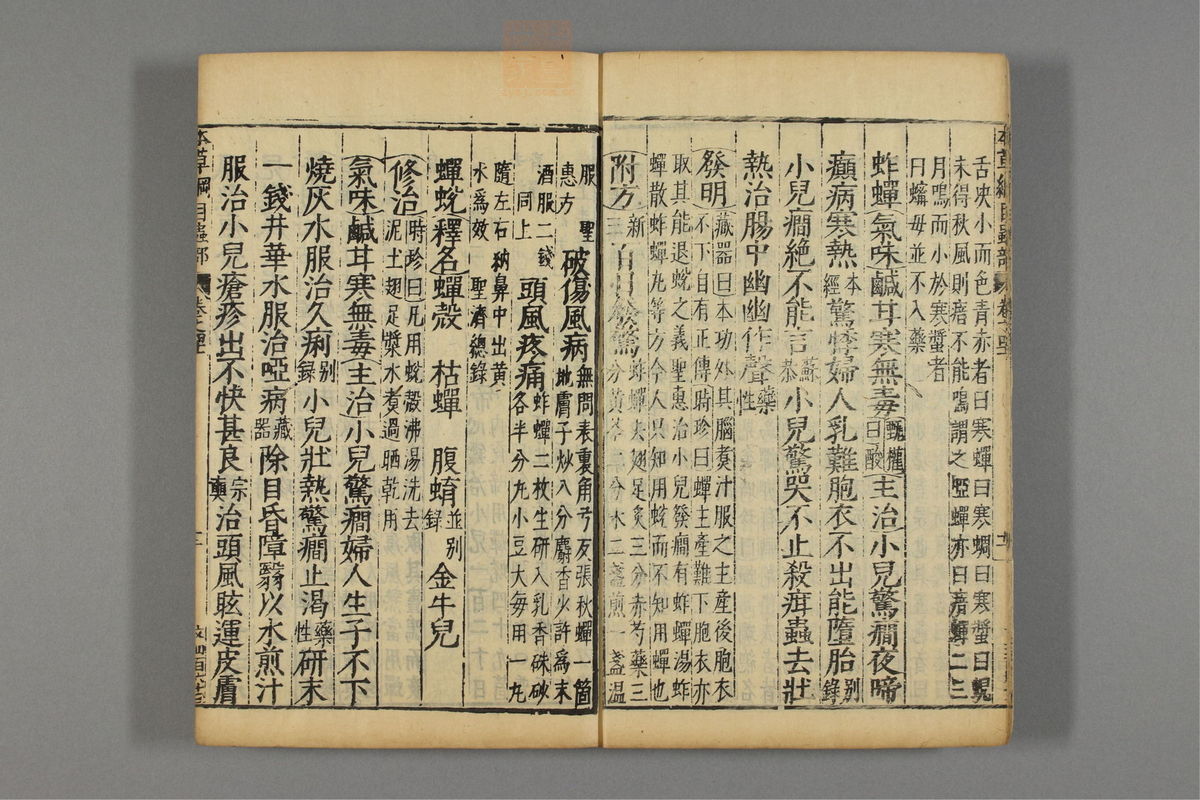 舌坎小而色青赤者曰寒蟬曰寒蜩曰寒螿曰蜺
未得秋風則瘖不能鳴謂之啞蟬亦曰瘖蟬二三
月鳴而小於寒螿者
曰蟪母並不入藥
蚱蟬氣味鹹甘寒無毒甄權曰酸主治小兒驚癇夜啼
癲病寒熱本經驚悸婦人乳難胞衣不出能墮胎別錄
小兒癇絶不能言蘇恭小兒驚哭不止殺疳蟲去壯
熱治腸中幽幽作聲藥性
發明藏器曰本功外其腦煮汁服之主産後胞衣
不下自有正傳時珍曰蟬主產難下胞衣亦
取其能退蛻之義聖惠治小兒發癇有蚱蟬湯蚱
蟬散蚱蟬丸等方今人只知用蛻而不知用蟬也
附方新三百日發驚蚱蟬去翅足炙三分赤芍藥三
分黃芩二分水二盞煎一盞溫
服聖惠方破傷風病無問表裏角弓反張秋蟬一箇
地膚子炒八分麝香少許爲末
酒服二錢同上頭風疼痛蚱蟬二枚生研入乳香硃砂
各半分丸小豆大每用一丸
隨左右納鼻中出黃
水爲效聖濟總錄
蟬蛻釋名蟬殼 枯蟬 腹蜟並別錄 金牛兒
修治時珍曰凡用蛻殼沸湯洗去
泥土翅足漿水煮過晒乾用
氣味鹹甘寒無毒主治小兒驚癇婦人生子不下
燒灰水服治久痢別錄小兒壯熱驚癇止渴藥性研末
一錢井華水服治啞病藏器除目昏障翳以水煎汁
服治小兒瘡疹出不快甚良宗奭治頭風眩運皮膚
本草綱目蟲部